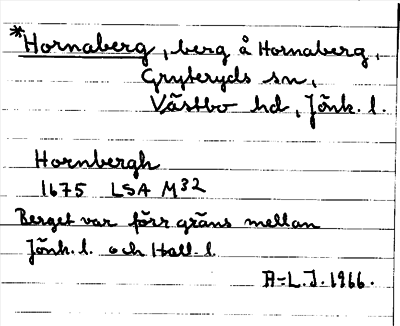 *Hornaberg, berg å Hornaberg,
Gryteryds sn,
Västbo hd, Jönk. l.
Hornbergh
1675 LSA M32
Berget var förr gräns mellan
Jönk. l. och Hall. l.
A-L.J. 1966.